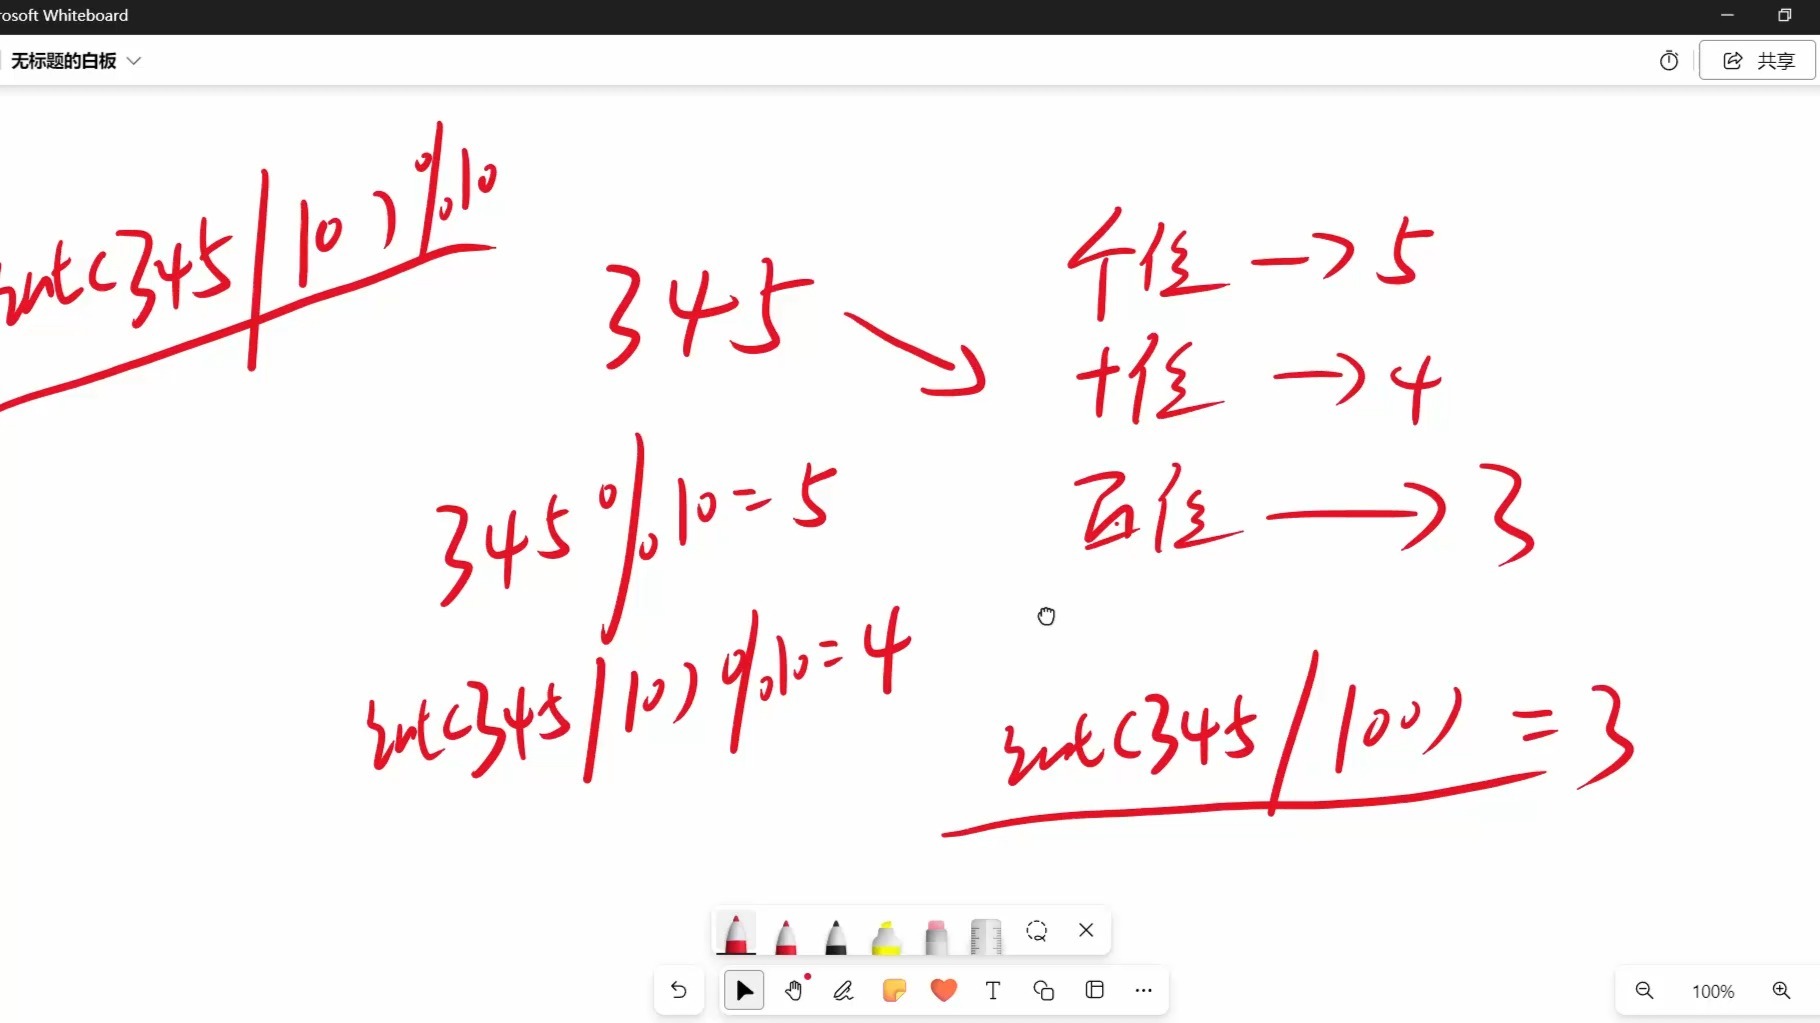 rosoft Whiteboard
无标题的白板
共享
int(345/10)%10
345
个位→5
十位→4
百位→3
345%10=5
int(345/10)%10=4
int(345/100)=3
100%